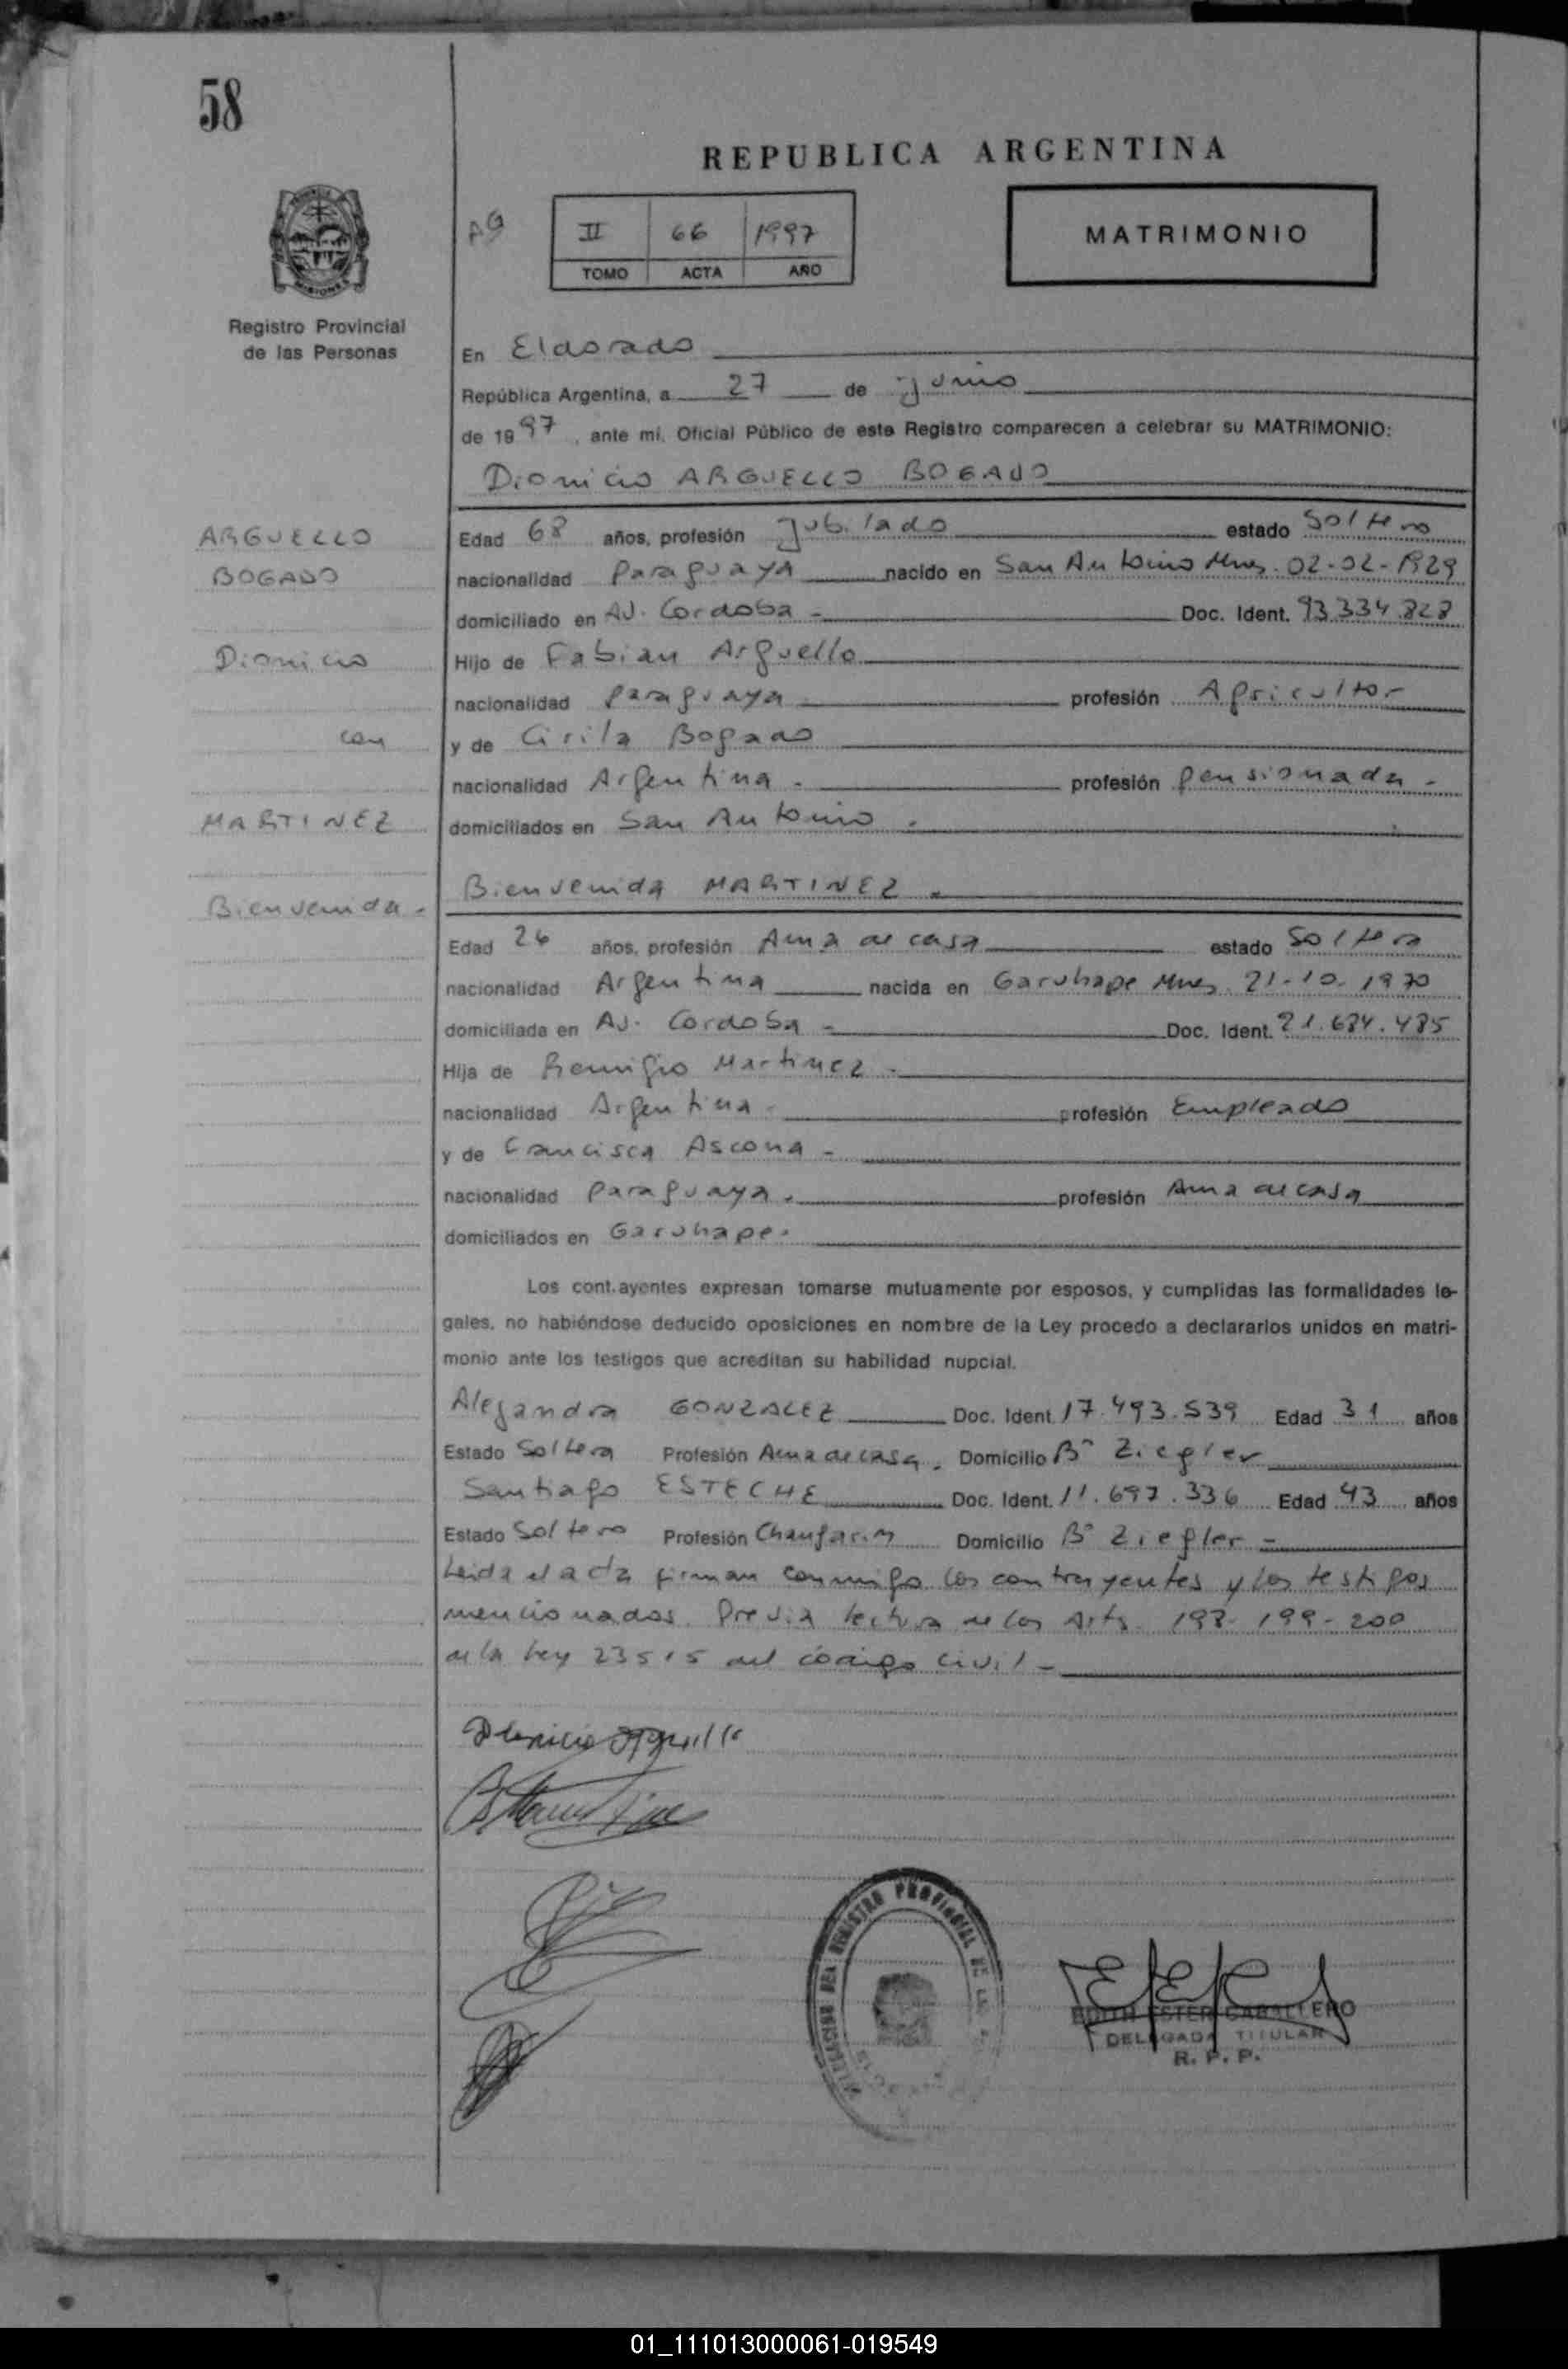 58
REPUBLICA ARGENTINA
MISIONES
Registro Provincial
de las Personas
AG
II 66 1997
TOMO ACTA AÑO
MATRIMONIO
En Eldorado
República Argentina, a 27 de junio
de 1997, ante mí, Oficial Público de este Registro comparecen a celebrar su MATRIMONIO:
Dionicio ARGUELLO BOGADO
ARGUELLO
BOGADO
Dionicio
con
MARTINEZ
Bienvenida -
Edad 68 años, profesión Jubilado estado Soltero
nacionalidad Paraguaya nacido en San Antonio Mnes. 02-02-1929
domiciliado en AV. Cordoba - Doc. Ident. 93.334.828
Hijo de Fabian Arguello
nacionalidad Paraguaya profesión Agricultor
y de Cirila Bogado
nacionalidad Argentina - profesión pensionada -
domiciliados en San Antonio -
Bienvenida MARTINEZ -
Edad 26 años, profesión Ama de casa estado Soltera
nacionalidad Argentina nacida en Garuhape Mnes. 21-10-1970
domiciliada en AV. Cordoba - Doc. Ident. 21.684.485
Hija de Remigio Martinez -
nacionalidad Argentina - profesión Empleado
y de Francisca Ascona -
nacionalidad Paraguaya. profesión Ama de casa
domiciliados en Garuhape.
Los cont.ayentes expresan tomarse mutuamente por esposos, y cumplidas las formalidades le-
gales, no habiéndose deducido oposiciones en nombre de la Ley procedo a declararlos unidos en matri-
monio ante los testigos que acreditan su habilidad nupcial.
Alejandra GONZALEZ Doc. Ident. 17.493.539 Edad 31 años
Estado Soltera Profesión Ama de casa. Domicilio Bº Ziegler
Santiago ESTECHE Doc. Ident. 11.697.336 Edad 43 años
Estado Soltero Profesión Domicilio Bº Ziegler -
Leida el acta firman conmigo los contrayentes y los testigos
mencionados. Previa lectura de los Arts. 198-199-200
de la Ley 23515 del código civil -
Dionicio Arguello
B Martinez
REGISTRO PROVINCIAL DE
EDITH ESTER CABALLERO
DELEGADA TITULAR
R. P. P.
01_111013000061-019549